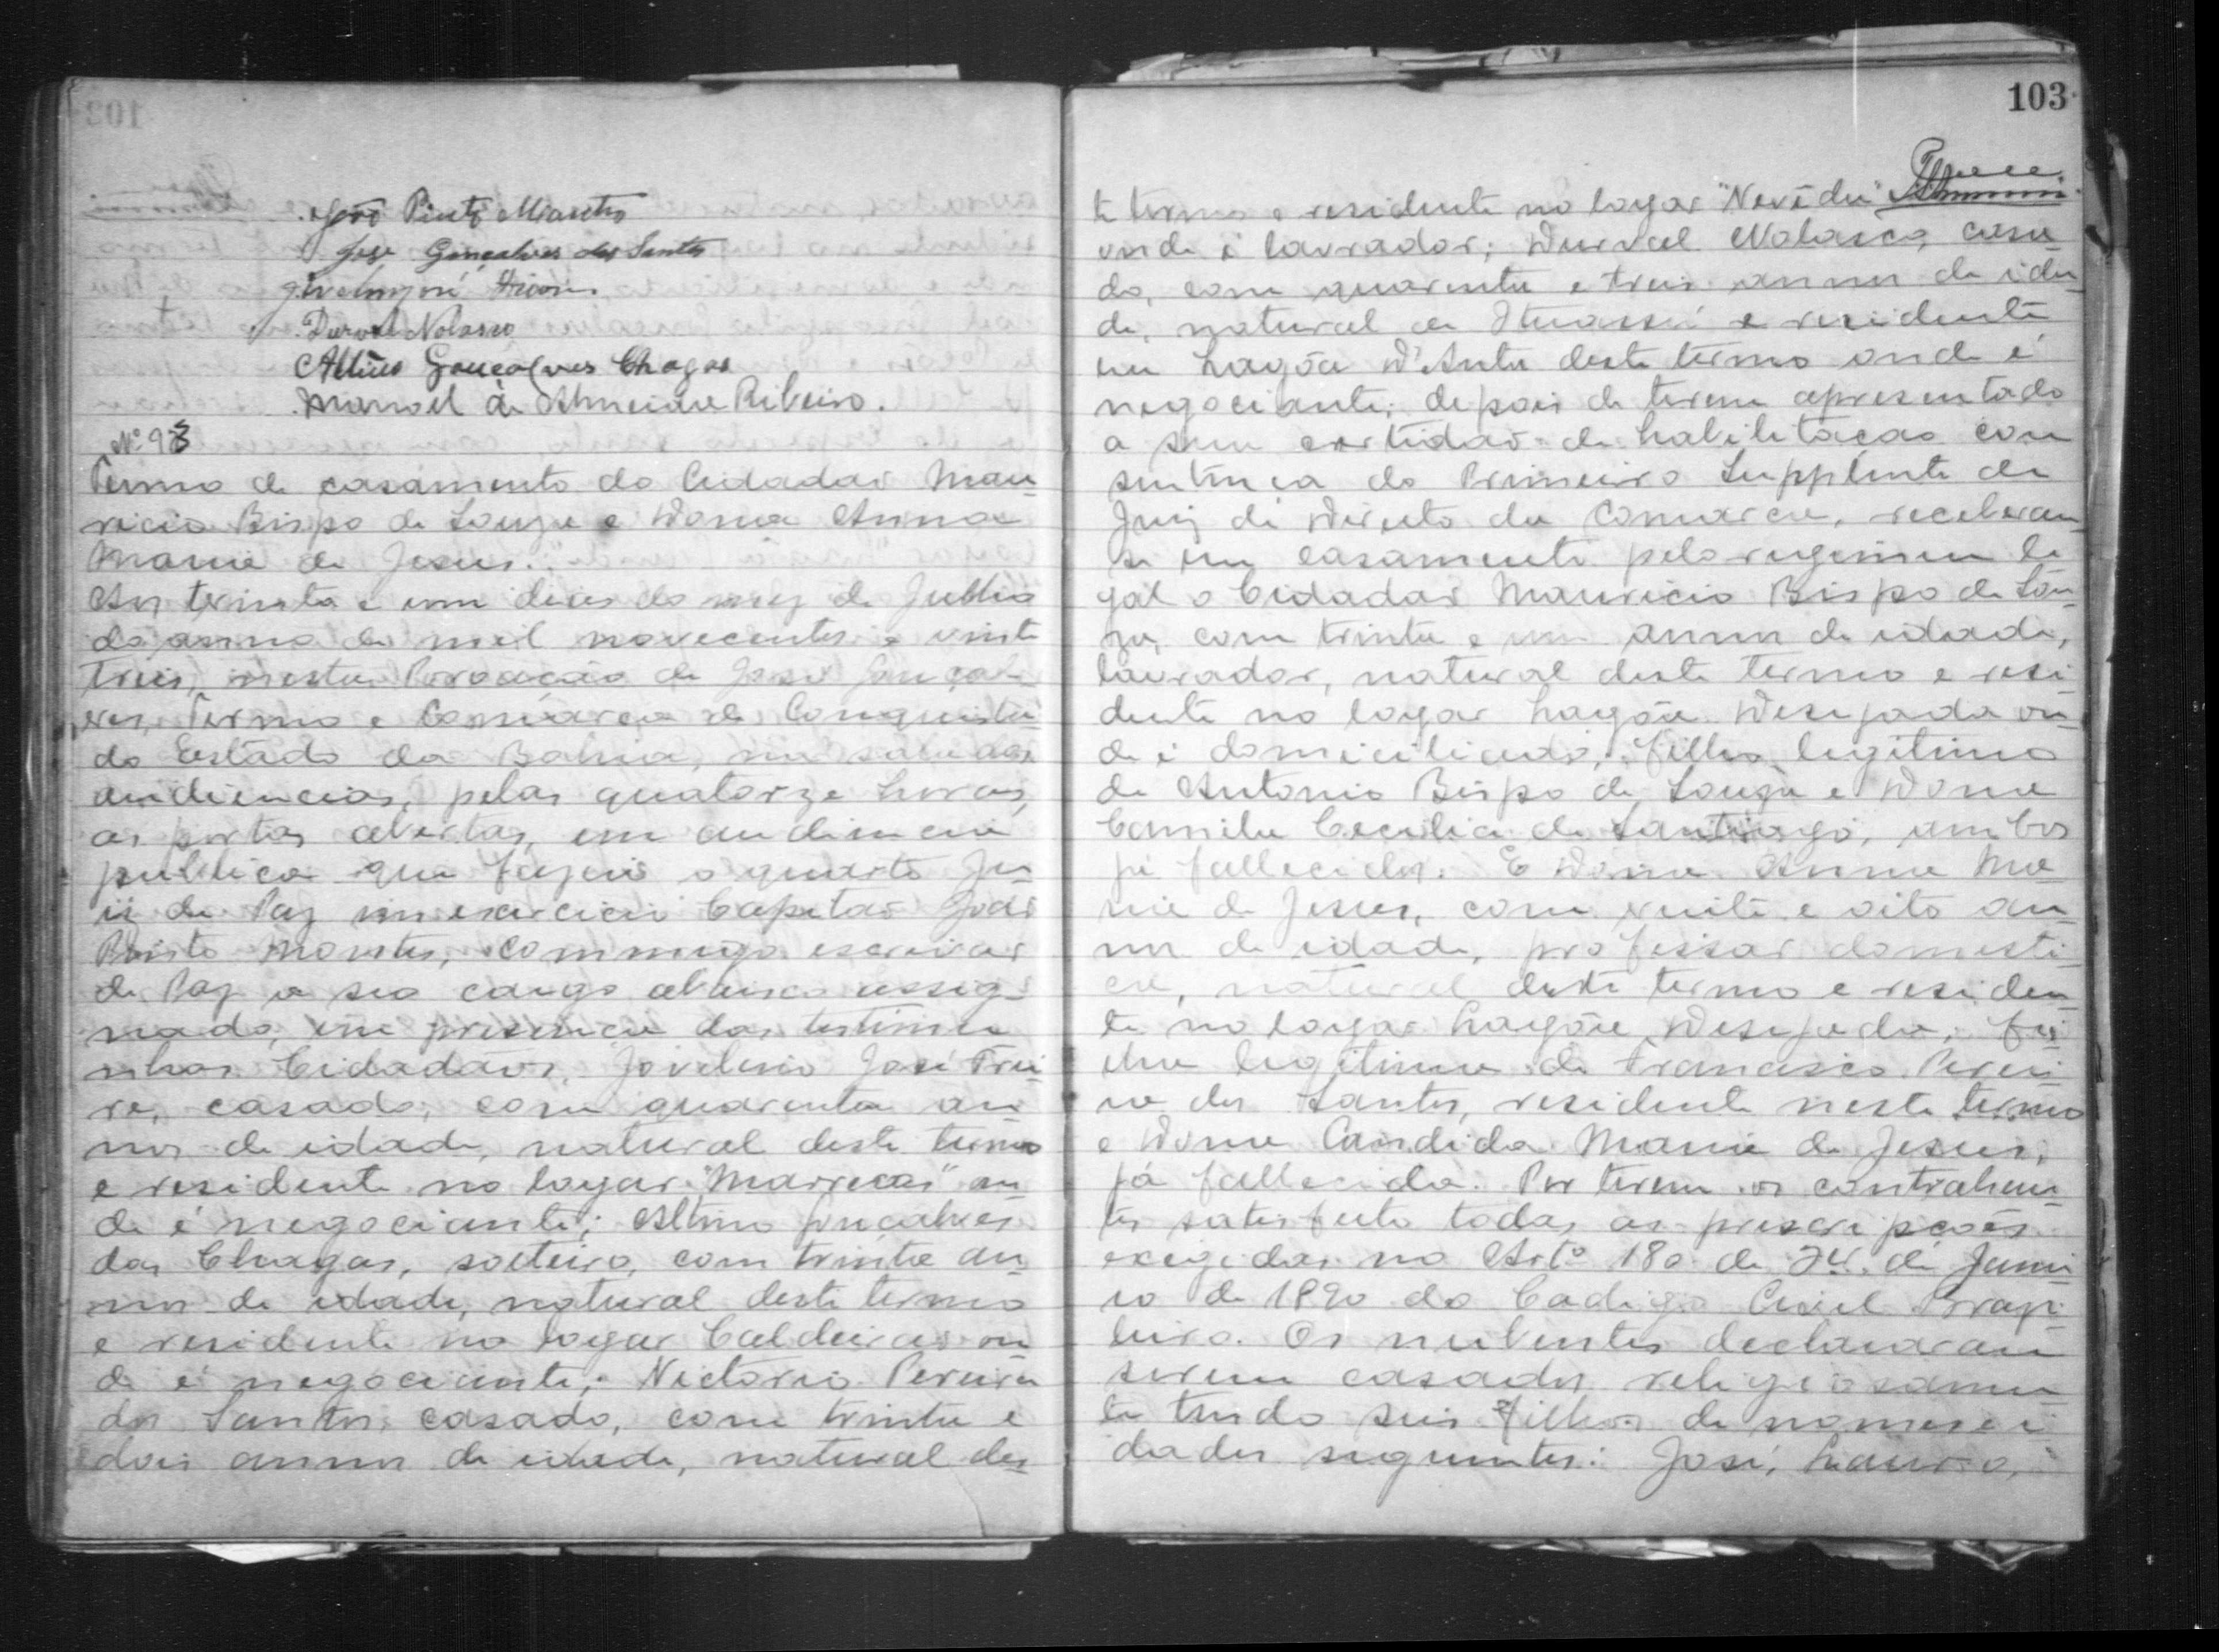 João Pinto Monstes
José Gonçalves dos Santos
Durval Nolasco
Altino Gonçalves Chagas
Manoel de Almeida Ribeiro.
Nº 98
Termo de casamento do Cidadão Mau-
ricio Bispo de Souza e Dona Anna
Maria de Jesus.
Aos trinta e um dias do mez de Julho
do anno de mil novecentos e vinte
tres, nesta Povoação de José Gonçal-
ves, Termo e Comarca de Conquista
do Estado da Bahia, na sala das
audiencias, pelas quatorze horas,
as portas abertas, em audiencia
publica que fazia o quarto Ju-
iz de Paz em exercicio Capitão João
Pinto Monstes, commigo escrivão
de Paz a seo cargo abaixo assig-
nado, em presencia das testimu-
nhas Cidadãos, Jovelino José Frei-
re, casado, com quarenta an-
nos de idade, natural deste termo
e residente no logar "Marrecas" on-
de é negociante; Altino Gonçalves
das Chagas, solteiro, com trinta an-
nos de idade, natural deste termo
e residente no logar Caldeiras on-
de é negociante; Victorio Pereira
dos Santos, casado, com trinta e
dois annos de idade, natural des-
103
te termo e residente no logar
onde é lavrador; Durval Nolasco, casa-
do, com quarenta e treis annos de ida-
de, natural de Ituassú e residente
na Lagôa D'Anta deste termo onde é
negociante; depois de terem apresentado
a sua certidão de habilitação com
sentença do Primeiro Supplente de
Juiz de Direito da Comarca, receberam-
se em casamento pelo regimen le-
gal o Cidadão Mauricio Bispo de Sou-
za, com trinta e um annos de idade,
lavrador, natural deste termo e resi-
dente no logar Lagôa Desejada on-
de é domiciliado, filho legitimo
de Antonio Bispo de Souza e Dona
Camila Cecilia de Santiago, ambos
já fallecidos. E Dona Anna Ma-
ria de Jesus, com vinte e oito an-
nos de idade, professar domesti-
ca, natural deste termo e residen-
te no logar Lagôa Desejada, fi-
lha legitima de Francisco Perei-
ra dos Santos, residente neste termo
e Dona Candida Maria de Jesus,
já fallecida. Por terem os contrahen-
tes satisfeito todas as prescripções
exigidas no Artº 180 de 24 de Janei-
ro de 1890 do Codigo Civil Brazi-
leiro. Os nubentes declararam
serem casados religiosamen-
te tendo seis filhos de nomes e i-
dades seguintes: José, Lauro,